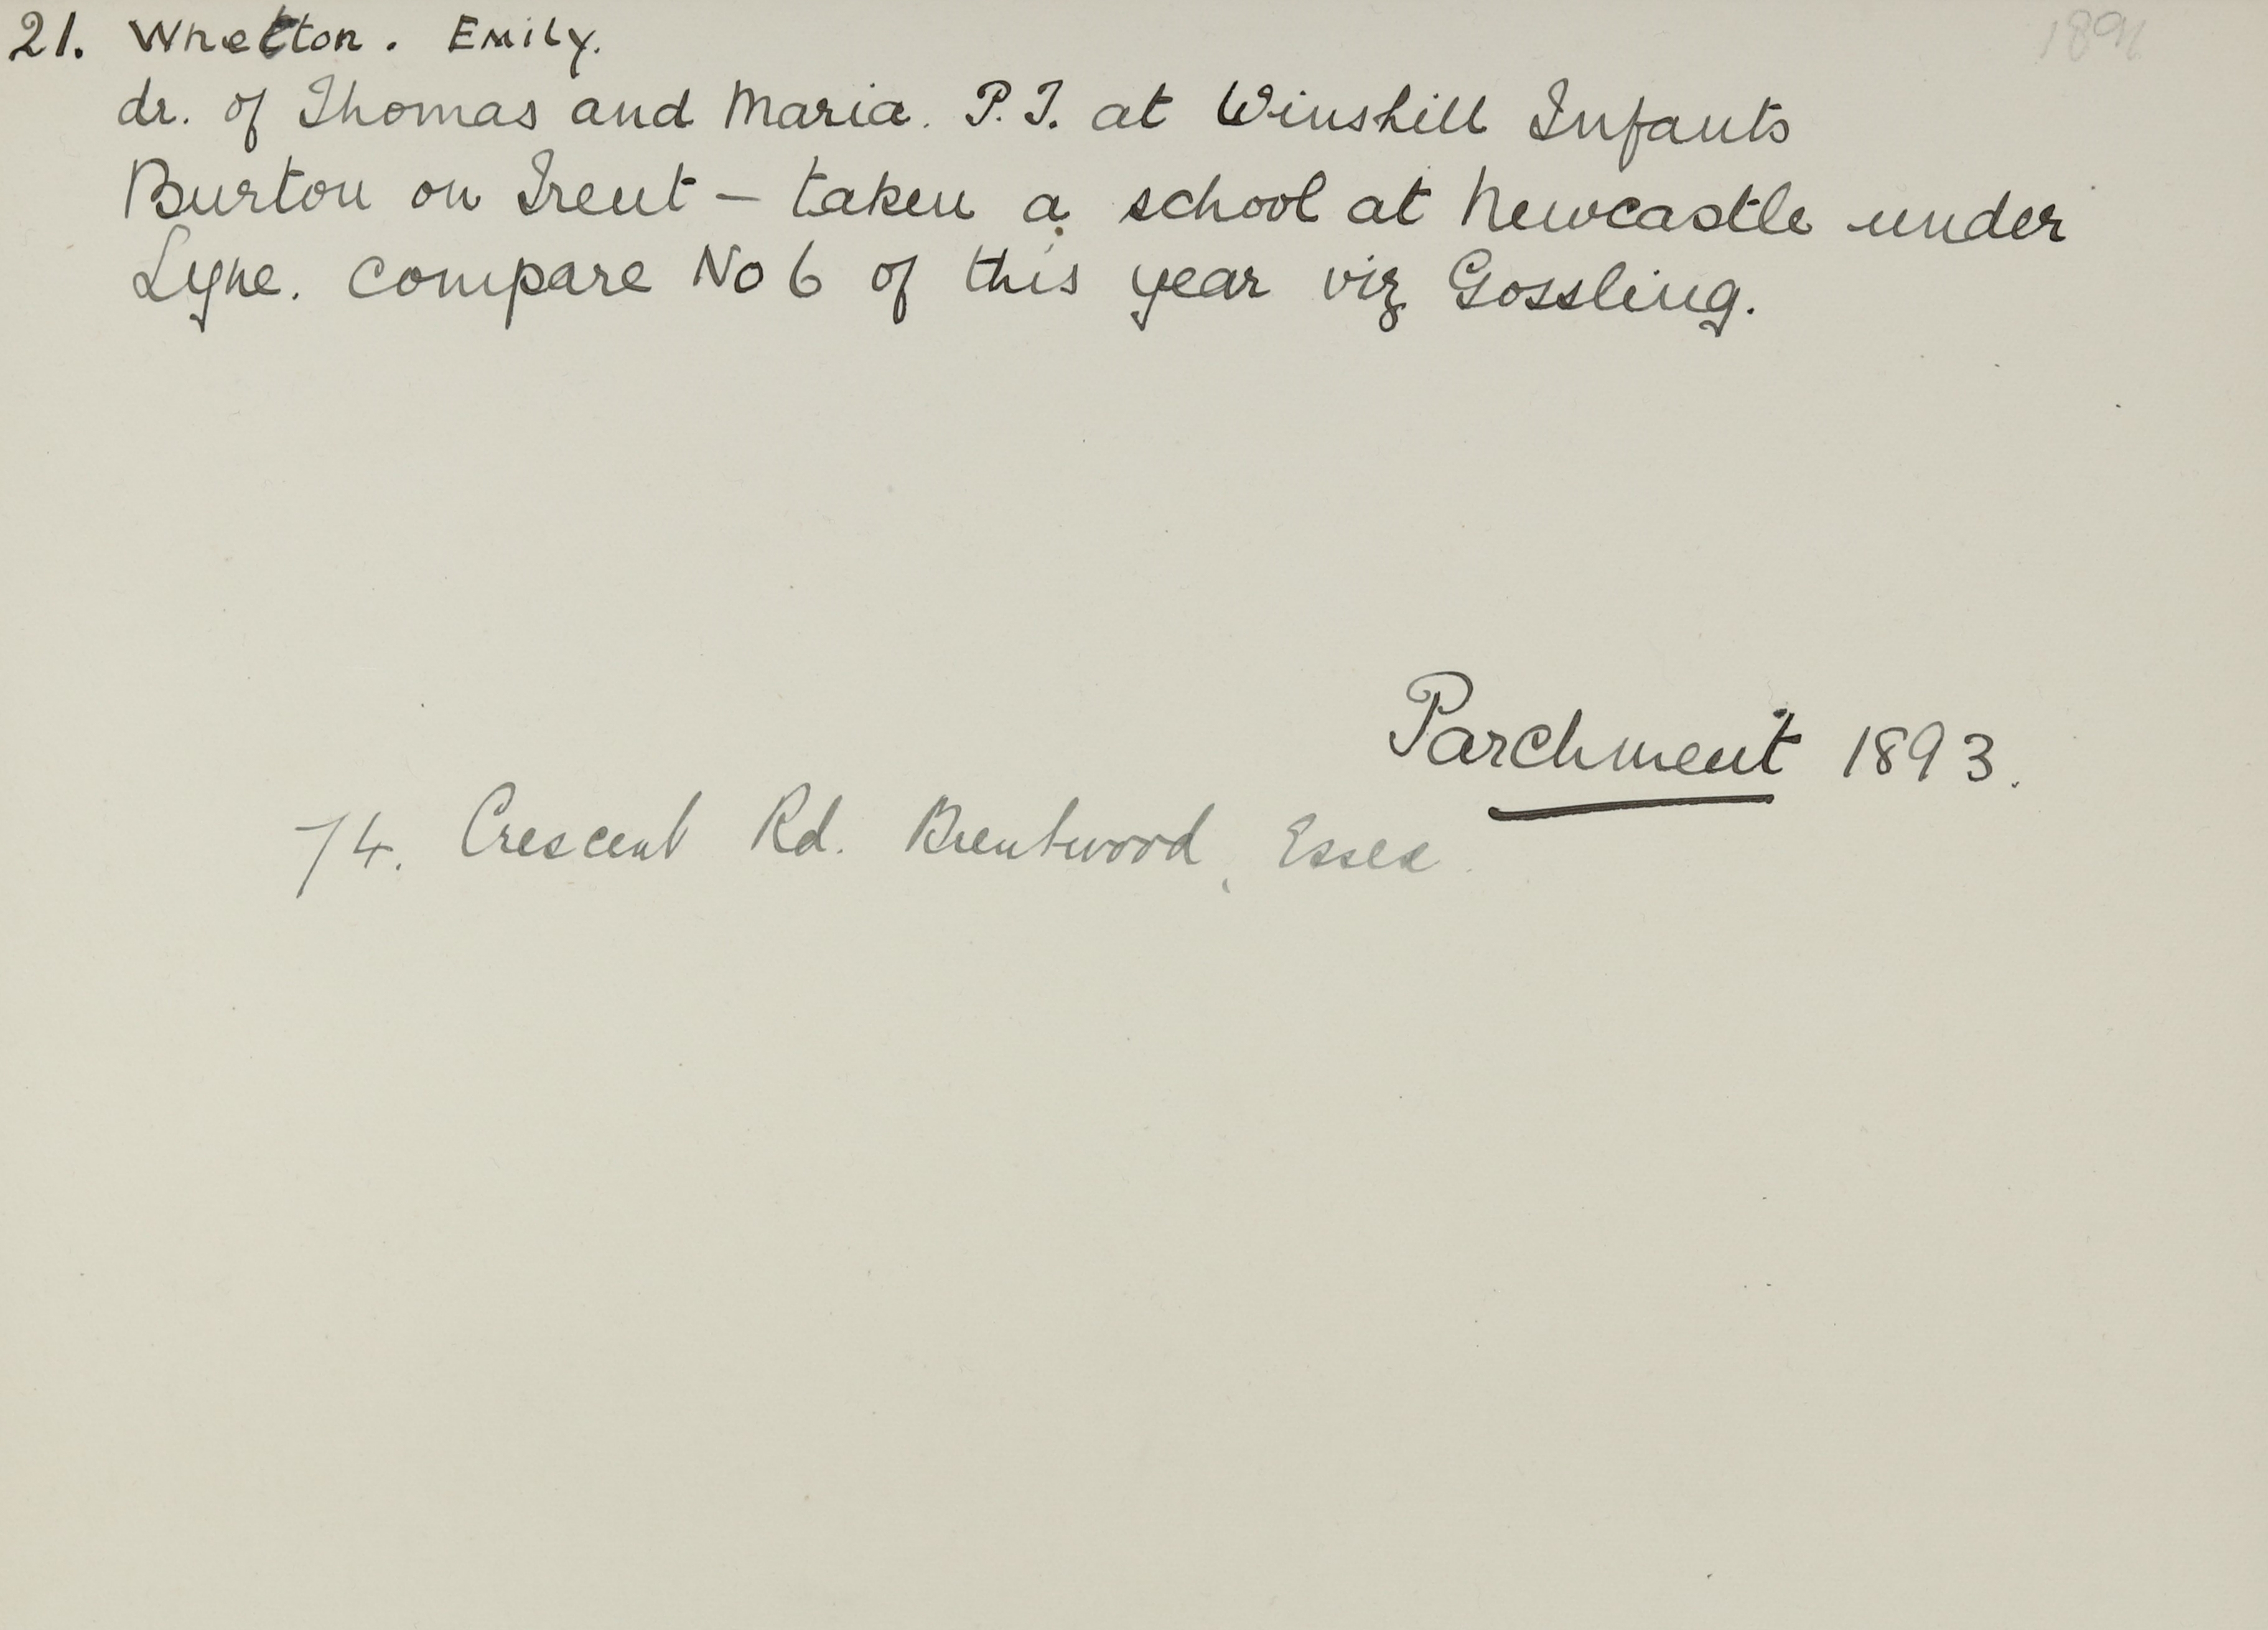 21. Whetton. Emily.
dr. of Thomas and Maria. P.T. at Winshill Infants
Burton on Trent – taken a school at Newcastle under
Lyne. Compare No 6 of this year viz Gossling.
Parchment 1893.
74. Crescent Rd. Brentwood, Essex.